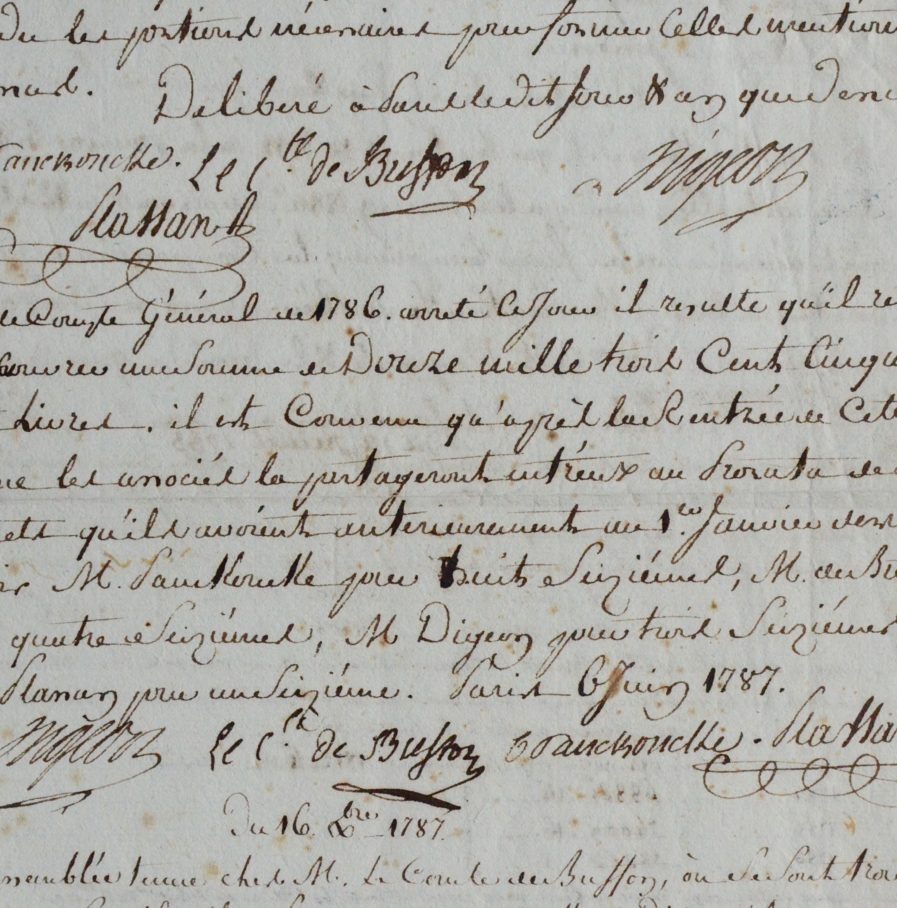 les portions nécessaires pour former Celles mention
Délibéré à Paris le dit Jour & an que Dess
anckoucke. Le Cte de Buffon Digeon
Plassan
Compte Général de 1786. arreté ce Jour il resulte qu'il re
une Somme de Douze mille trois Cent Cinqu
Livres. il est Convenu qu'après la Rentrée de Cet
les associés la partageront entr'eux au Prorata de
qu'ils avoient anterieurement au 1er Janvier der
M. Panckoucke pour huit Seiziémes, M. de Bu
quatre Seiziémes, M Digeon pour trois Seiziémes
Plassan pour un Seiziéme. Paris 6 Juin 1787.
Digeon Le Cte de Buffon Panckoucke. Plassa
Du 16. Xbre 1787.
ssemblée tenue chez M. Le Comte de Buffon, où Se Sont trou